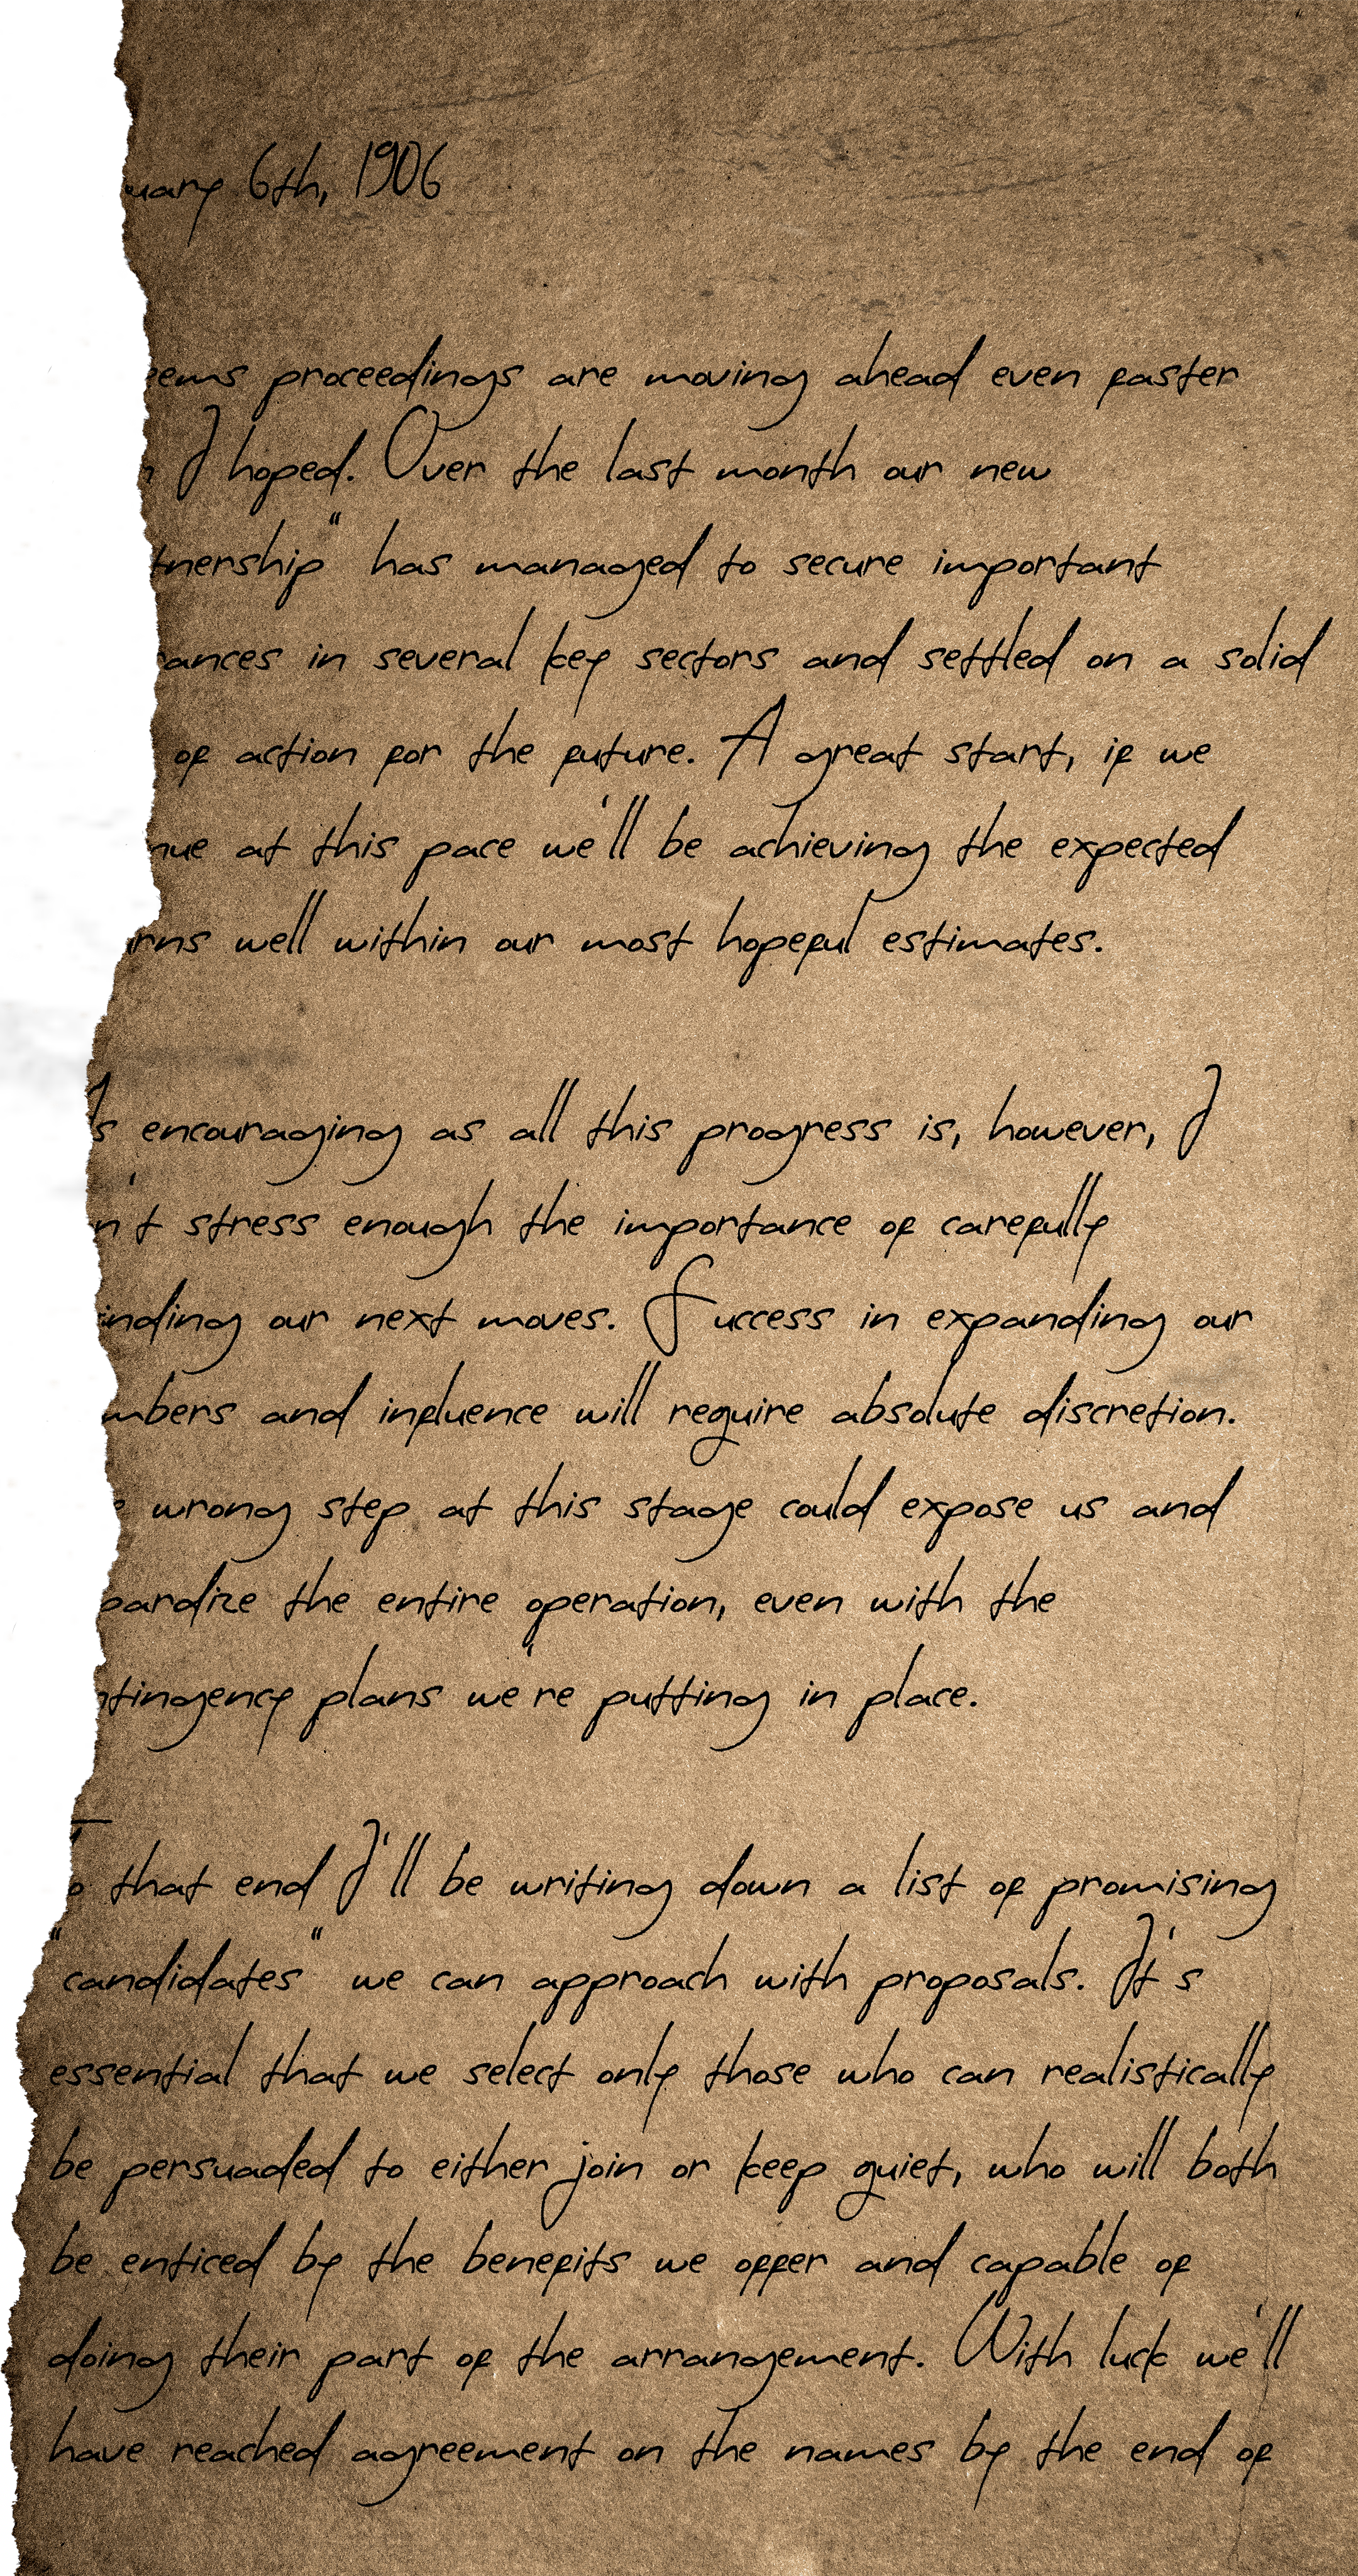 uary 6th, 1906
eems proceedings are moving ahead even faster
n I hoped. Over the last month our new
tnership" has managed to secure important
ances in several key sectors and settled on a solid
of action for the future. A great start, if we
nue at this pace we'll be achieving the expected
urns well within our most hopeful estimates.
As encouraging as all this progress is, however, I
n't stress enough the importance of carefully
inding our next moves. Success in expanding our
mbers and influence will require absolute discretion.
e wrong step at this stage could expose us and
pardize the entire operation, even with the
ntingency plans we're putting in place.
To that end I'll be writing down a list of promising
"candidates" we can approach with proposals. It's
essential that we select only those who can realistically
be persuaded to either join or keep quiet, who will both
be enticed by the benefits we offer and capable of
doing their part of the arrangement. With luck we'll
have reached agreement on the names by the end of